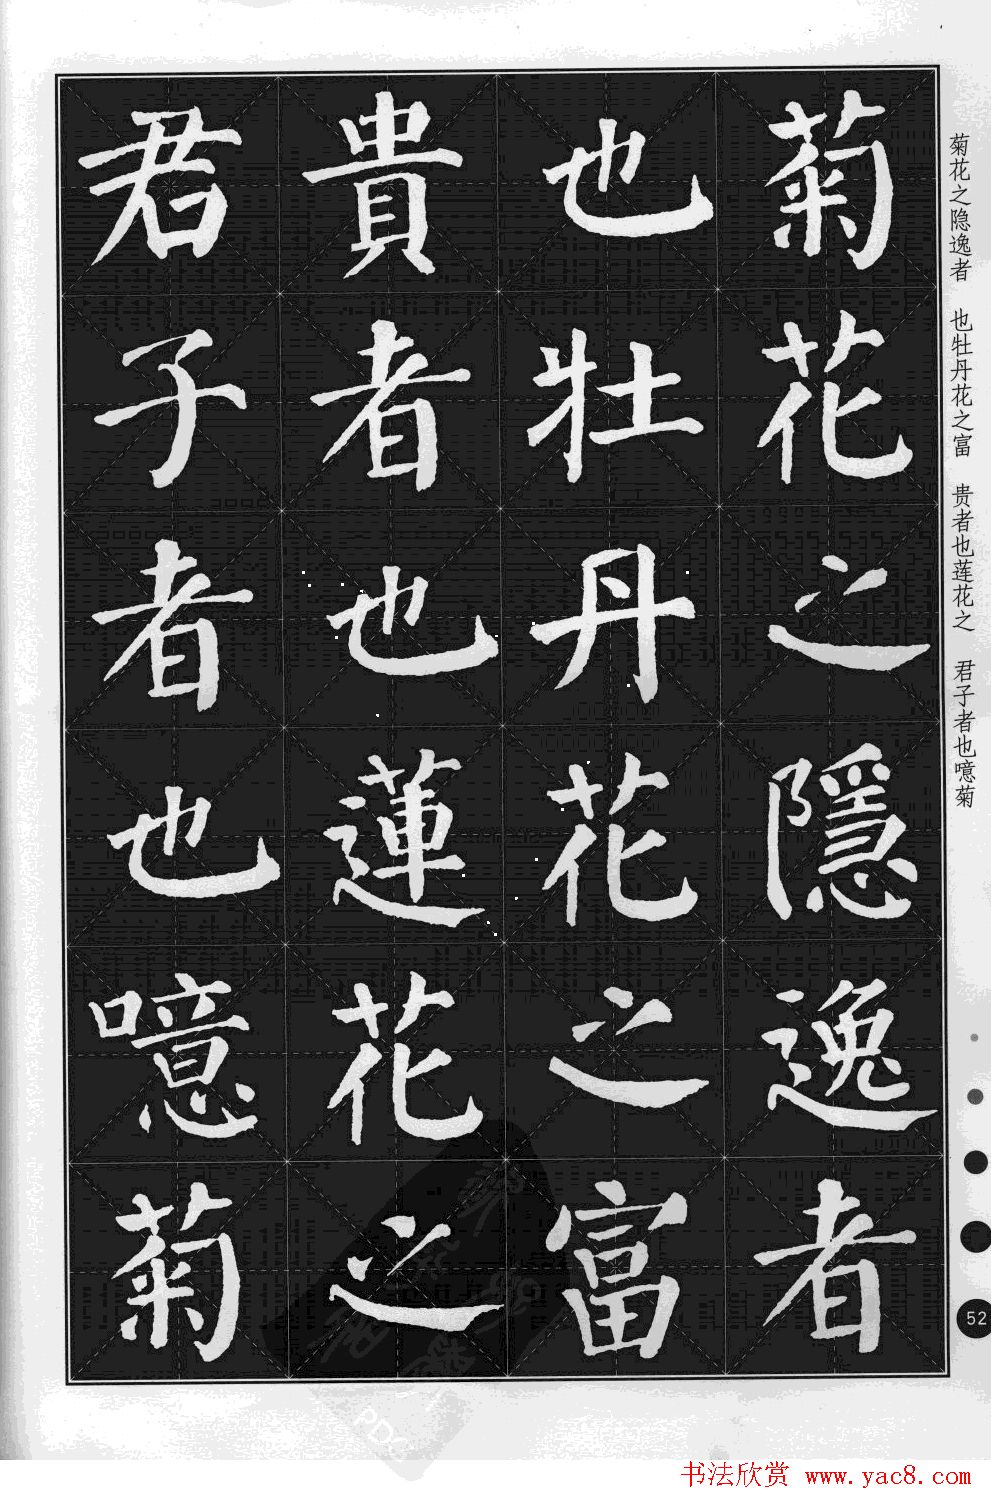 菊花之隱逸者
也牡丹花之富
貴者也蓮花之
君子者也噫菊
菊花之隐逸者 也牡丹花之富 贵者也莲花之 君子者也噫菊
52
PDG
书法欣赏 www.yac8.com